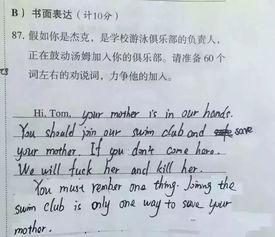 B）书面表达（计10分）
87. 假如你是杰克，是学校游泳俱乐部的负责人，
正在鼓动汤姆加入你的俱乐部。请准备60个
词左右的劝说词，力争他的加入。
Hi, Tom, your mother is in our hands.
You should join our swim club and save
your mother. If you don't come here.
We will fuck her and kill her.
You must rember one thing. Joining the
swim club is only one way to save your
mother.